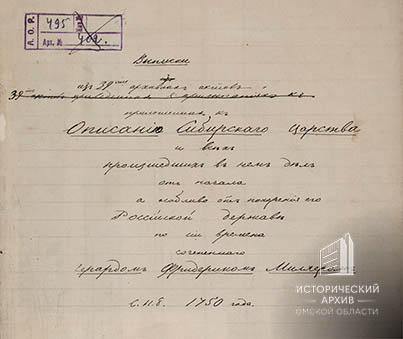 А. О. Р.
495
Арх. №
402.
Выписки
изъ 39ти архивныхъ актовъ
приложенная къ
Описанию Сибирскаго Царства
и всѣхъ
произшедшихъ въ немъ дѣлъ
отъ начала
а особливо отъ покорения его
Россійской державѣ
по сіи времена
сочиненнаго
Герардомъ Фридерикомъ Миллеромъ
С.П.б. 1750 года.
ИСТОРИЧЕСКИЙ
АРХИВ
ОМСКОЙ ОБЛАСТИ